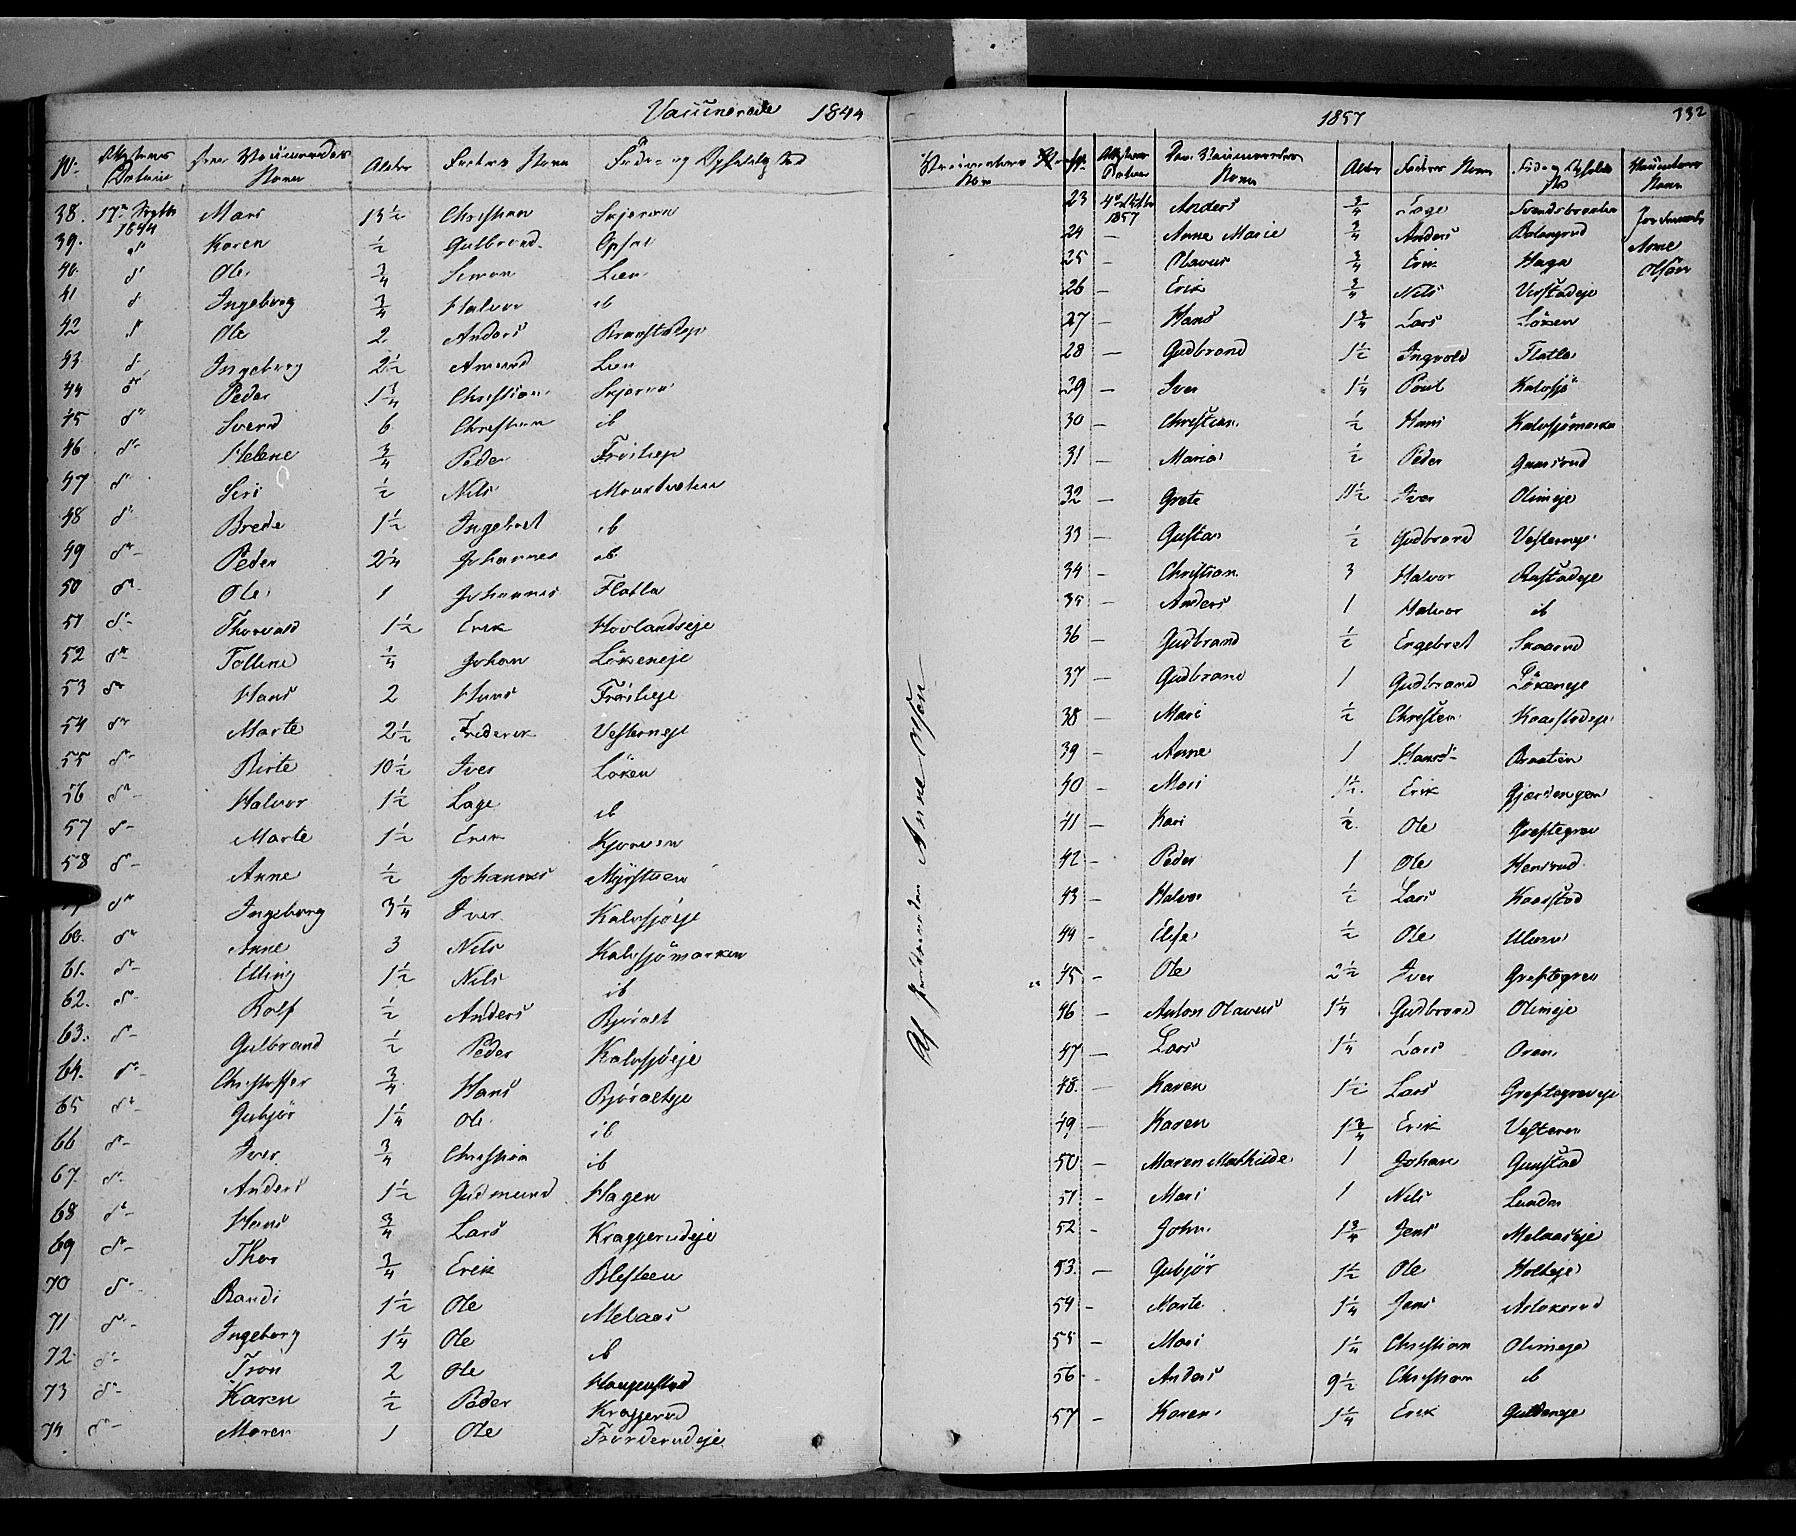 Vaccinerede 1844
No. Attestens Datum Den Vaccineredes Navn Alder Faders Navn Føde- og Opholdssted
38. 17de Septbr 1844 Mari 13½ Christian
39. do Karen ½ Gulbrand Opsal
40. do Ole ¾ Simon Lien
41 do Ingeborg ¾ Halvor ib
42 do Ole 2 Anders
43 do Ingeborg 2½ Amund Lien
44 do Peder 1¾ Christian
45 do Svend 6 Christian ib
46 do Helene ¾ Peder
47 do Siri ½ Nils
48 do Brede 1½ Ingebret ib
49 do Peder 2¼ Johannes ib
50 do Ole 1 Johannes Flatla
51 do Thorvald 1½ Erik Hovlandseje
52 do Johan Løkeneje
53 do Hans 2 Hans
54 do Marte 2½ Frederik Vesterneje
55 do Birte 10½ Iver Løken
56 do Halvor 1½ Lage ib
57 do Marte 1½ Erik
58 do Anne ½ Johannes Myrstuen
do Ingeborg 3¼ Iver Kalvsjøeje
60. do Anne 3 Nils Kalvsjømarken
61. do Elling 1½ Nils ib
62. do Rolf ½ Anders Bjøralt
63. do Gulbrand ½ Peder Kalvsjøeje
64. do Christoffer ¾ Hans Bjøralteje
65 do Gubjør 1¼ Ole ib
66 do Iver ¾ Christian ib
67. do Anders 1½ Gudmund Hagen
68 do Hans ¾ Lars Kraggerudeje
69 do Thor ¾ Erik Blesteen
70 do Randi 1½ Ole Melaas
71 do Ingeborg 1¼ Ole ib
72 do Tron 2 Ole Haugenstad
73 do Karen ½ Peder Kraggerud
74 do Maren 1 Ole
Af Anne Olsen
1857
332
No. Attestens Datum Den Vaccineredes Navn Alder Faders Navn Føde og Opholds Sted Navn
23 1857 Anders ¾ Lage Svendsbraaten
24 — Anne Marie ¾ Anders Bolangrud Anne
25 — Olavus ¾ Erik Haga Olsen
26 — Erik ¾ Nils
27 — Hans 1¾ Lars Løken
28 — Gudbrand 1½ Ingvold Flatla
29 — Iver 1¼ Poul Kalvsjø
30 — Christian ½ Hans Kalvsjømarka
31 — Maria ½ Peder
32 — Grete Iver Olimeje
33 — Gusta ½ Gudbrand Vesterneje
34 — Christian 3 Halvor Rastadeje
35 — Anders 1 Halvor ib
36 — Gudbrand ½ Engebret
37 — Gudbrand 1 Gudbrand Løkeneje
38 — Mari ½ Christen Kaarstadeje
39 — Anne 1 Hans Braaten
40 — Mari Erik
41 — Kari ½ Ole Greftegrev
42 — Peder 1 Ole Hensrud
43 — Halvor ½ Lars Kaarstad
44 — Elise ½ Ole
45 — Ole 2½ Iver Greftegrev
46 — Anton Olavus 1¼ Gudbrand Olimeje
47 — Lars 1¼ Lars Oren
48. — Karen 1½ Lars Greftegreveje
49 — Karen 1¾ Erik Vesteren
50 — Maren Mathilde 1 Johan Gunstad
51 — Mari 1 Nils Lunda
52 — John 1¾ Jens Melaaseje
53. — Gubjør 1½ Ole Holteje
54 — Marte 1¼ Jens Aslaksrud
55 — Mari 1¼ Christian Olimeje
56 — Anders 9½ Christian ib
57 — Karen 1¼ Erik Guldeneje